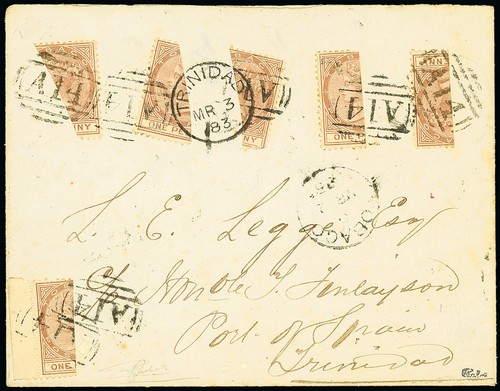 A14
NNY
A14
ONE PE
TRINIDAD
MR 3
83
A14
ONE
A14
NN
A14
TOBAGO
L. E. Legge Esq
c/o Honble T. Finlayson
Port of Spain
Trinidad
A14
A14
ONE